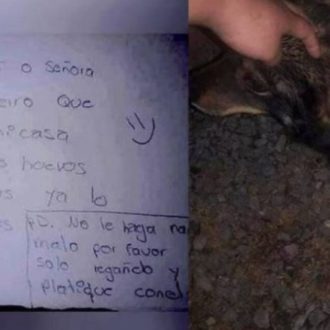 o Señora
que
micasa
huevos
ya lo
PD. No le haga na
malo por favor
solo regañelo y
platique con el